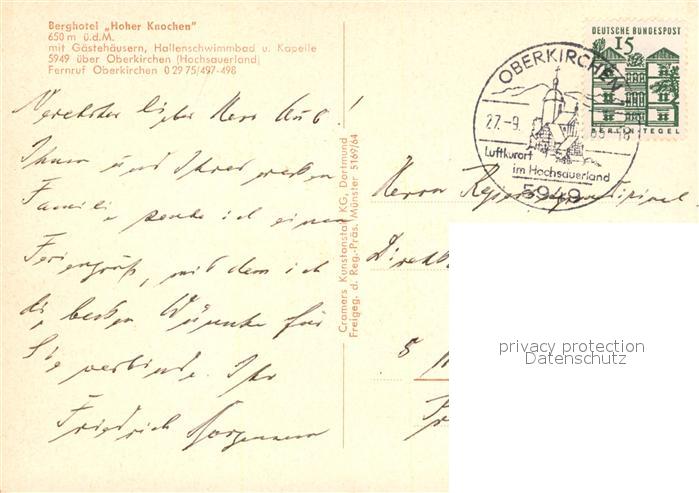 Berghotel „Hoher Knochen"
650 m ü.d.M.
mit Gästehäusern, Hallenschwimmbad u. Kapelle
5949 über Oberkirchen (Hochsauerland)
Fernruf Oberkirchen 0 29 75/497-498
lieber Herr !
Ihnen und Ihrer
Familie sende ich einen
Feriengruß, mit dem ich
die besten Wünsche für
Sie verbinde. Ihr
Friedrich
Cramers Kunstanstalt KG, Dortmund
Freigeg. d. Reg.-Präs. Münster 5169/64
OBERKIRCHEN
27.-9.
Luftkurort
im Hochsauerland
5949
DEUTSCHE BUNDESPOST
15
BERLIN-TEGEL
Herrn
5
privacy protection
Datenschutz